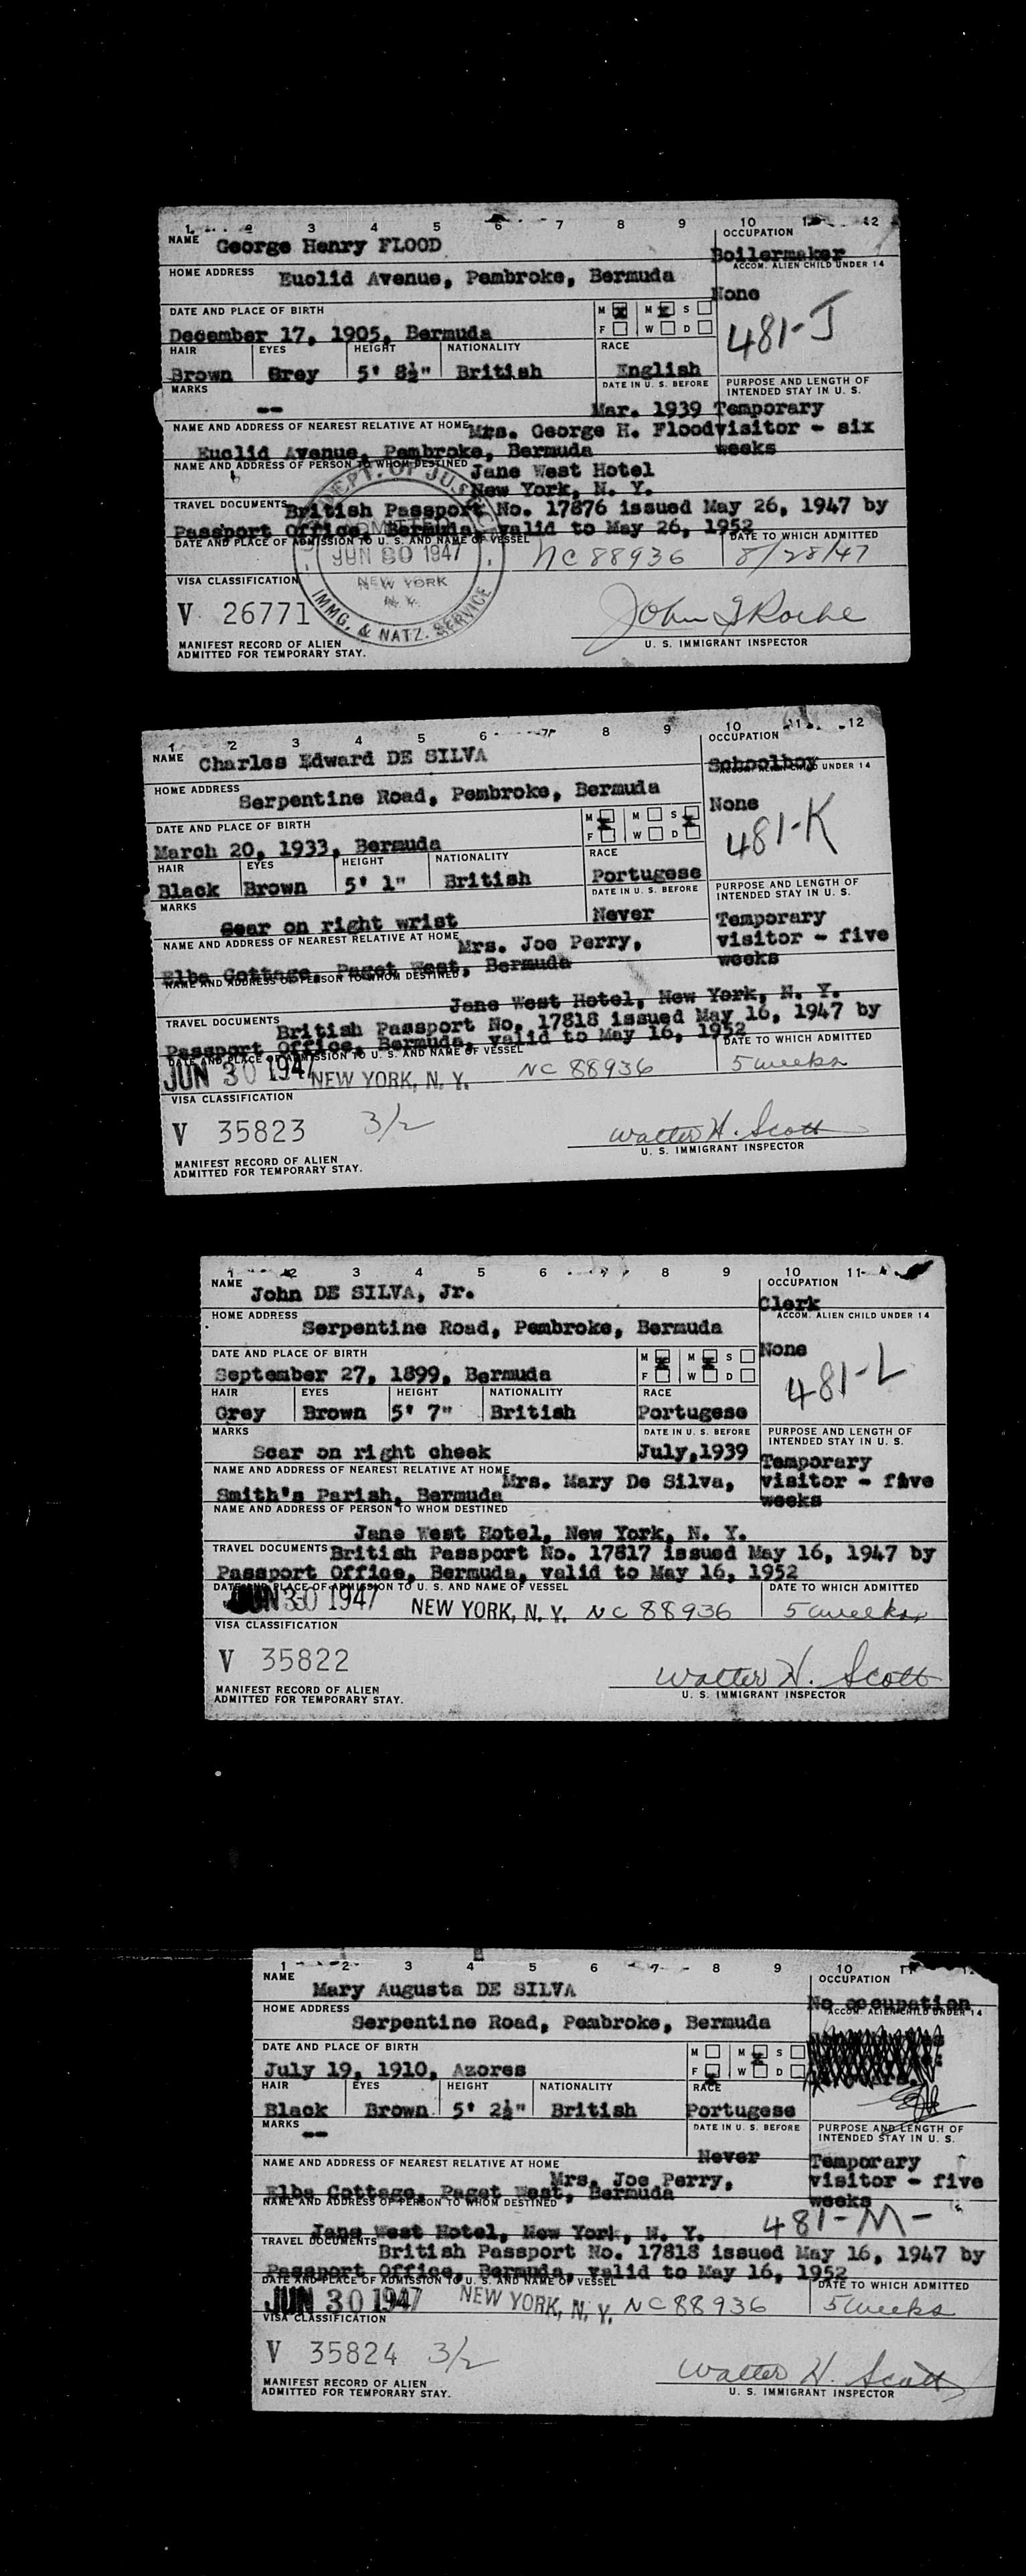 1 2 3 4 5 6 7 8 9 10 11 12
NAME George Henry FLOOD
OCCUPATION Boilermaker
HOME ADDRESS Euclid Avenue, Pembroke, Bermuda
ACCOM. ALIEN CHILD UNDER 14 None
DATE AND PLACE OF BIRTH M X M X S
December 17, 1905, Bermuda F W D
481-J
HAIR EYES HEIGHT NATIONALITY RACE
Brown Grey 5' 8½" British English
MARKS -- DATE IN U. S. BEFORE Mar. 1939
PURPOSE AND LENGTH OF
INTENDED STAY IN U. S.
Temporary
visitor - six
weeks
NAME AND ADDRESS OF NEAREST RELATIVE AT HOME Mrs. George H. Flood
Euclid Avenue, Pembroke, Bermuda
NAME AND ADDRESS OF PERSON TO WHOM DESTINED Jane West Hotel
New York, N. Y.
TRAVEL DOCUMENTS British Passport No. 17876 issued May 26, 1947 by
Passport Office, Bermuda, valid to May 26, 1952
DATE AND PLACE OF ADMISSION TO U. S. AND NAME OF VESSEL
DATE TO WHICH ADMITTED
DEPT. OF JUSTICE
ADMITTED
JUN 30 1947
NEW YORK
N. Y.
IMMG. & NATZ. SERVICE
NC 88936 8/28/47
VISA CLASSIFICATION
V 26771
John J Roche
U. S. IMMIGRANT INSPECTOR
MANIFEST RECORD OF ALIEN
ADMITTED FOR TEMPORARY STAY.
1 2 3 4 5 6 7 8 9 10 11 12
NAME Charles Edward DE SILVA
OCCUPATION Schoolboy
HOME ADDRESS Serpentine Road, Pembroke, Bermuda
ACCOM. ALIEN CHILD UNDER 14 None
DATE AND PLACE OF BIRTH M X M S X
March 20, 1933, Bermuda F W D
481-K
HAIR EYES HEIGHT NATIONALITY RACE
Black Brown 5' 1" British Portugese
MARKS Scar on right wrist DATE IN U. S. BEFORE Never
PURPOSE AND LENGTH OF
INTENDED STAY IN U. S.
Temporary
visitor - five
weeks
NAME AND ADDRESS OF NEAREST RELATIVE AT HOME Mrs. Joe Perry,
Elba Cottage, Paget West, Bermuda
NAME AND ADDRESS OF PERSON TO WHOM DESTINED
Jane West Hotel, New York, N. Y.
TRAVEL DOCUMENTS British Passport No. 17818 issued May 16, 1947 by
Passport Office, Bermuda, valid to May 16, 1952
DATE AND PLACE OF ADMISSION TO U. S. AND NAME OF VESSEL
DATE TO WHICH ADMITTED
JUN 30 1947 NEW YORK, N. Y. NC 88936 5 weeks
VISA CLASSIFICATION
V 35823 3/2
Walter H. Scott
U. S. IMMIGRANT INSPECTOR
MANIFEST RECORD OF ALIEN
ADMITTED FOR TEMPORARY STAY.
1 2 3 4 5 6 7 8 9 10 11
NAME John DE SILVA, Jr.
OCCUPATION Clerk
HOME ADDRESS Serpentine Road, Pembroke, Bermuda
ACCOM. ALIEN CHILD UNDER 14 None
DATE AND PLACE OF BIRTH M X M X S
September 27, 1899, Bermuda F W D
481-L
HAIR EYES HEIGHT NATIONALITY RACE
Grey Brown 5' 7" British Portugese
MARKS Scar on right cheek DATE IN U. S. BEFORE July, 1939
PURPOSE AND LENGTH OF
INTENDED STAY IN U. S.
Temporary
visitor - five
weeks
NAME AND ADDRESS OF NEAREST RELATIVE AT HOME Mrs. Mary De Silva,
Smith's Parish, Bermuda
NAME AND ADDRESS OF PERSON TO WHOM DESTINED
Jane West Hotel, New York, N. Y.
TRAVEL DOCUMENTS British Passport No. 17817 issued May 16, 1947 by
Passport Office, Bermuda, valid to May 16, 1952
DATE AND PLACE OF ADMISSION TO U. S. AND NAME OF VESSEL
DATE TO WHICH ADMITTED
JUN 30 1947 NEW YORK, N. Y. NC 88936 5 weeks
VISA CLASSIFICATION
V 35822
Walter H. Scott
U. S. IMMIGRANT INSPECTOR
MANIFEST RECORD OF ALIEN
ADMITTED FOR TEMPORARY STAY.
1 2 3 4 5 6 7 8 9 10 11
NAME Mary Augusta DE SILVA
OCCUPATION No occupation
HOME ADDRESS Serpentine Road, Pembroke, Bermuda
ACCOM. ALIEN CHILD UNDER 14
DATE AND PLACE OF BIRTH M M X S
July 19, 1910, Azores F X W D
HAIR EYES HEIGHT NATIONALITY RACE
Black Brown 5' 2½" British Portugese
MARKS -- DATE IN U. S. BEFORE Never
PURPOSE AND LENGTH OF
INTENDED STAY IN U. S.
Temporary
visitor - five
weeks
NAME AND ADDRESS OF NEAREST RELATIVE AT HOME
Mrs. Joe Perry,
Elba Cottage, Paget West, Bermuda
NAME AND ADDRESS OF PERSON TO WHOM DESTINED
Jane West Hotel, New York, N. Y. 481-M-
TRAVEL DOCUMENTS British Passport No. 17818 issued May 16, 1947 by
Passport Office, Bermuda, valid to May 16, 1952
DATE AND PLACE OF ADMISSION TO U. S. AND NAME OF VESSEL
DATE TO WHICH ADMITTED
JUN 30 1947 NEW YORK, N. Y. NC 88936 5 weeks
VISA CLASSIFICATION
V 35824 3/2
Walter H. Scott
U. S. IMMIGRANT INSPECTOR
MANIFEST RECORD OF ALIEN
ADMITTED FOR TEMPORARY STAY.